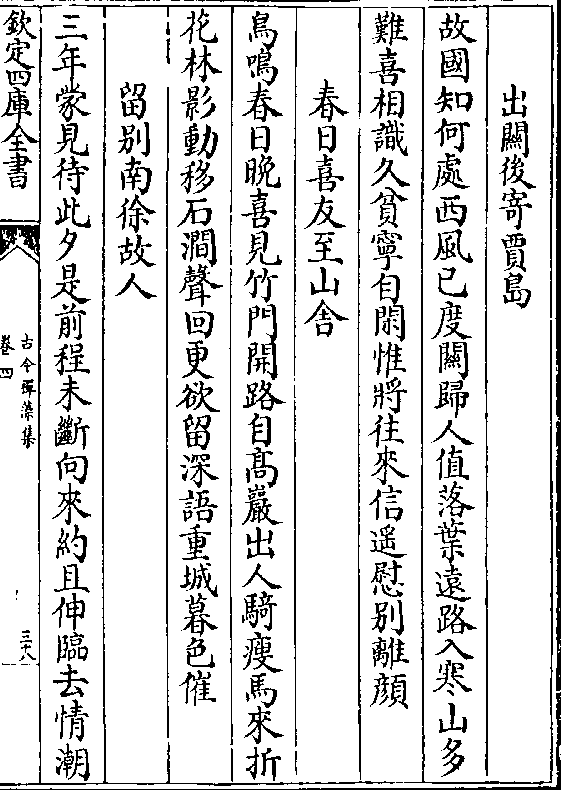 出關後寄賈島
故國知何處西風已度關歸人值落葉遠路入寒山多
難喜相識久貧寧自閑惟將往來信遥慰别離顔
春日喜友至山舍
鳥鳴春日晚喜見竹門開路自高巖出人騎瘦馬來折
花林影動移石澗聲回更欲留深語重城暮色催
留别南徐故人
三年蒙見待此夕是前程未斷向來約且伸臨去情潮
欽定四庫全書
古今禪藻集
卷四
三十八